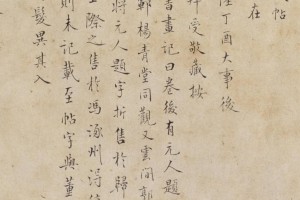 帖
在
陸丁酉大事後
拜受敬藏按
書畫記曰卷後有元人題
鄴楊青堂同觀又雲間郭
將元人題字折售於歸
之際之售於馮涿州得
則未記載至帖字與董
髮異其入